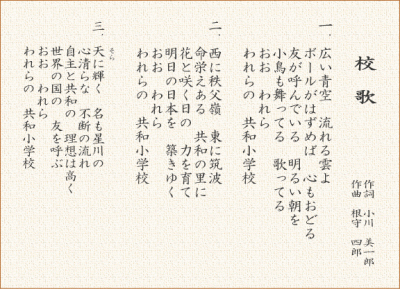 校歌
作詞 小川 美一郎
作曲 根守 四郎
一、広い青空 流れる雲よ
ボールがはずめば 心もおどる
友が呼んでいる 明るい朝を
小鳥も舞ってる 歌ってる
おお われら
われらの 共和小学校
二、西に秩父嶺 東に筑波
命栄えある 共和の里に
花と咲く日の 力を育て
明日の日本を 築きゆく
おお われら
われらの 共和小学校
三、天に輝く 名も星川の
そら
心清らな 不断の流れ
自主と共和の 理想は高く
世界の国の 友を呼ぶ
おお われら
われらの 共和小学校